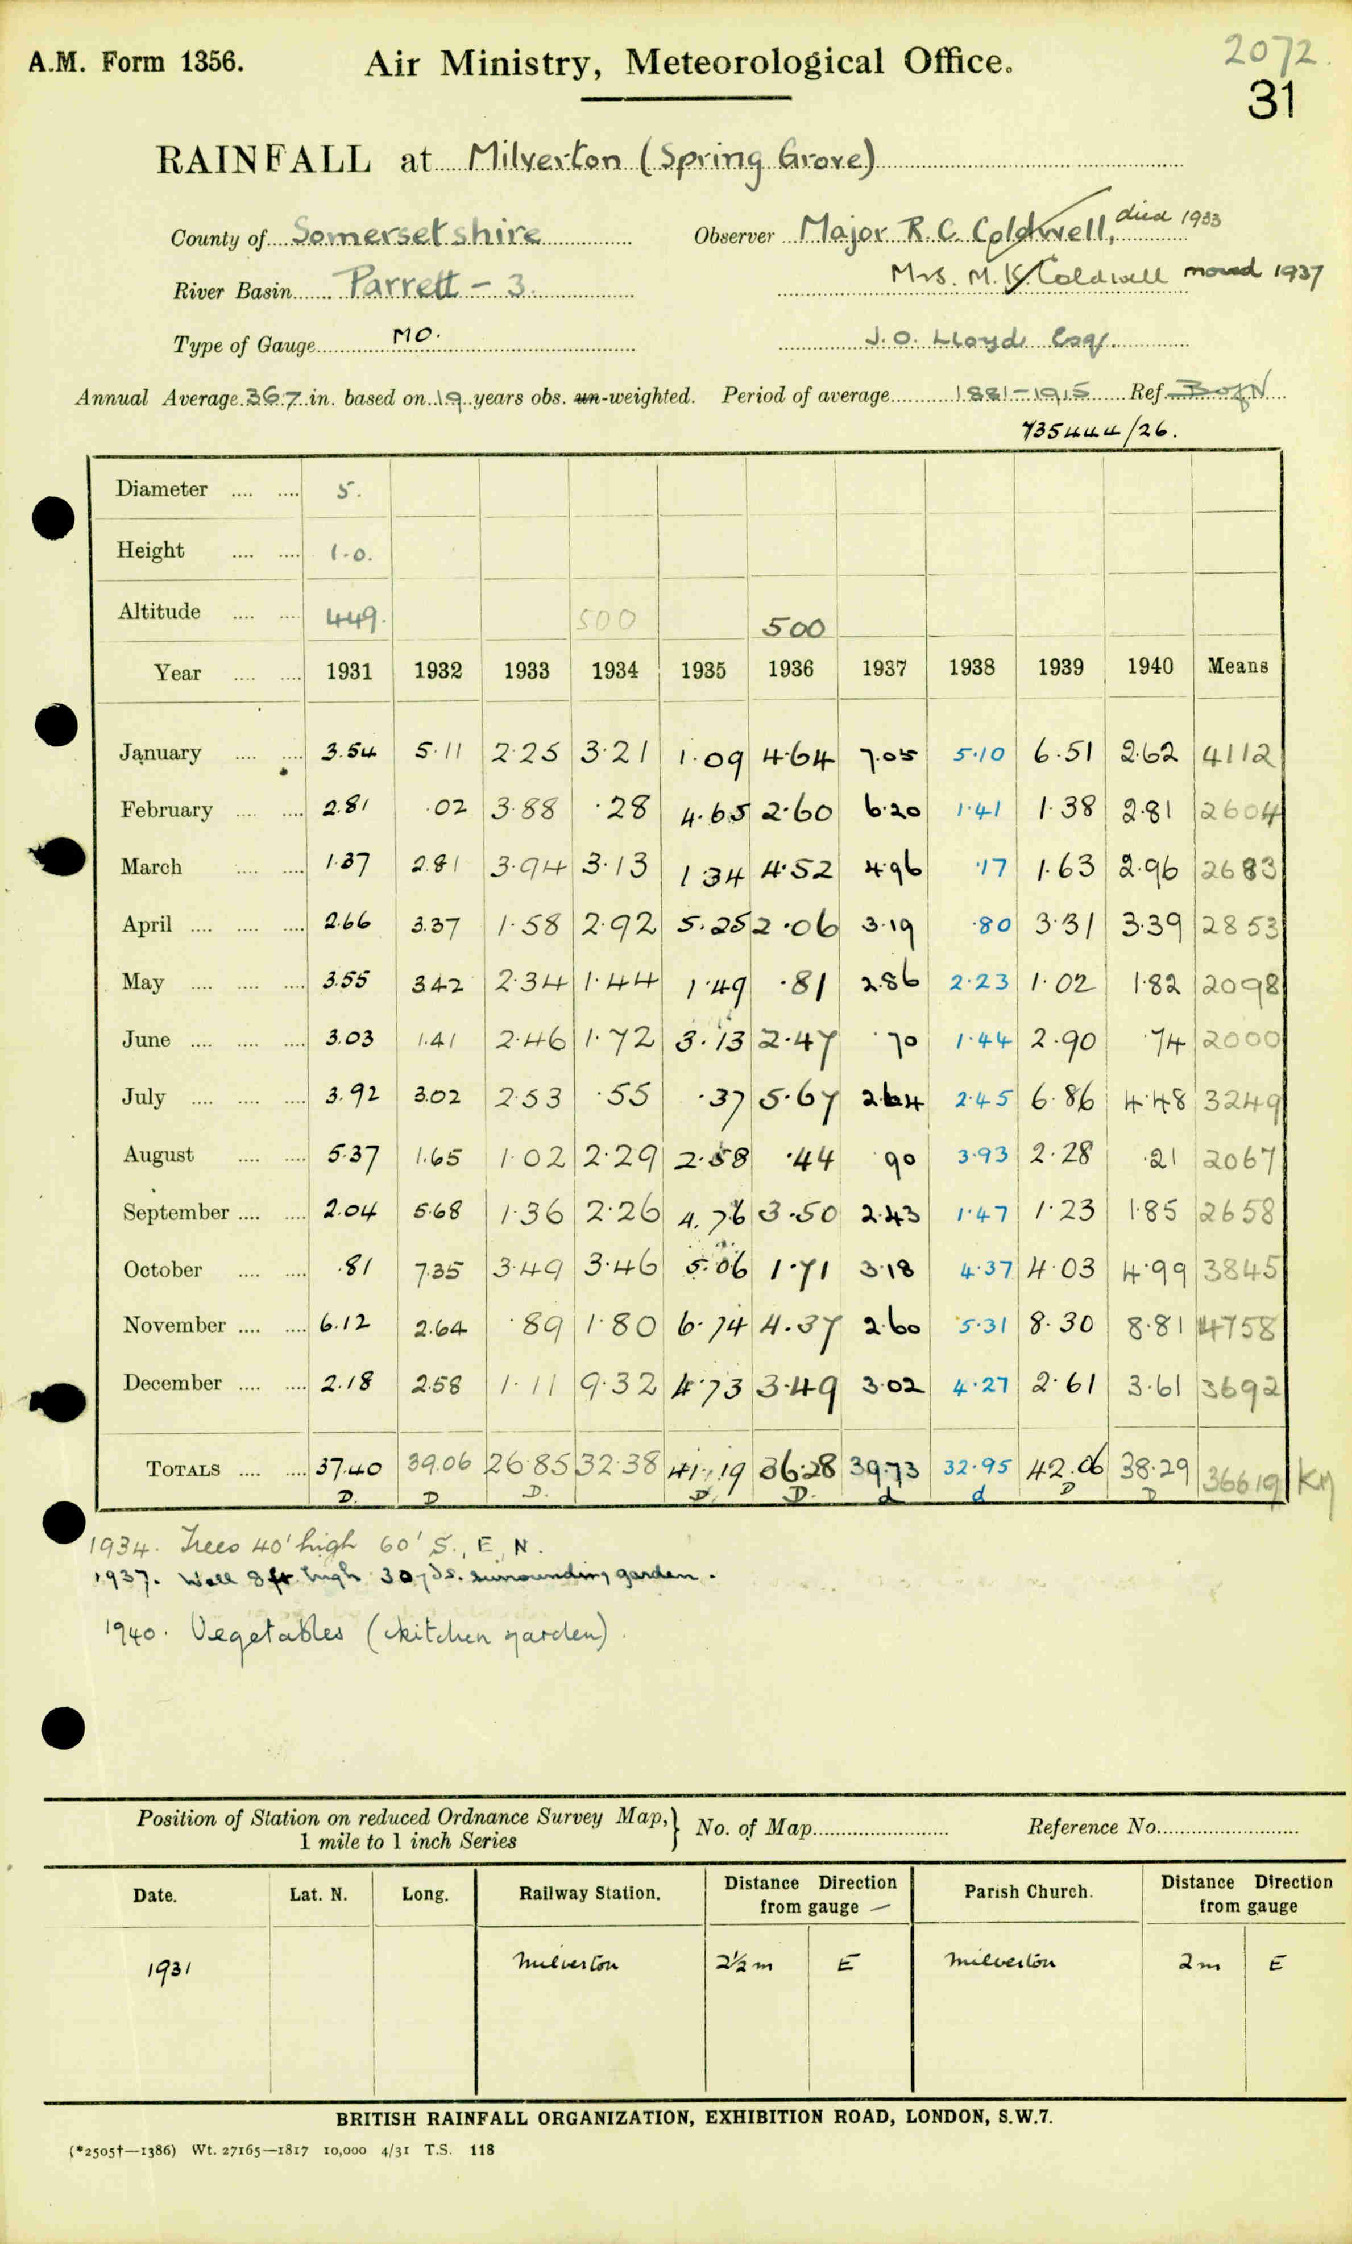 2072.
A.M. Form 1356. Air Ministry, Meteorological Office.
31
RAINFALL at Milverton (Spring Grove)
County of Somersetshire Observer Major R. C. Coldwell, died 1933
River Basin Parrett - 3. Mrs. M. K. Coldwell moved 1937
Type of Gauge MO. J. O. Lloyd Esq.
Annual Average 36.7 in. based on 19 years obs. un-weighted. Period of average 1881-1915 Ref. B of N
735444/26.
Diameter 5.
Height 1.0.
Altitude 449. 500 500
Year 1931 1932 1933 1934 1935 1936 1937 1938 1939 1940 Means
January 3.54 5.11 2.25 3.21 1.09 4.64 7.05 5.10 6.51 2.62 4112
February 2.81 .02 3.88 .28 4.65 2.60 6.20 1.41 1.38 2.81 2604
March 1.37 2.81 3.94 3.13 1 34 4.52 4.96 .17 1.63 2.96 2683
April 2.66 3.37 1.58 2.92 5.25 2.06 3.19 .80 3.31 3.39 2853
May 3.55 3.42 2.34 1.44 1.49 .81 2.86 2.23 1.02 1.82 2098
June 3.03 1.41 2.46 1.72 3.13 2.47 .70 1.44 2.90 .74 2000
July 3.92 3.02 2.53 .55 .37 5.67 2.64 2.45 6.86 4.48 3249
August 5.37 1.65 1.02 2.29 2.58 .44 .90 3.93 2.28 .21 2067
September 2.04 5.68 1.36 2.26 4.76 3.50 2.43 1.47 1.23 1.85 2658
October .81 7.35 3.49 3.46 5.06 1.71 3.18 4.37 4.03 4.99 3845
November 6.12 2.64 .89 1.80 6.74 4.37 2.60 5.31 8.30 8.81 4758
December 2.18 2.58 1.11 9.32 4.73 3.49 3.02 4.27 2.61 3.61 3692
TOTALS 37.40 39.06 26.85 32.38 41.19 36.28 39.73 32.95 42.06 38.29 36619
D. D D. D. D. d d D D
1934. Trees 40' high 60' S., E, N.
1937. Wall 8 ft. high 30 yds. surrounding garden.
1940. Vegetables (kitchen garden).
Position of Station on reduced Ordnance Survey Map, } No. of Map Reference No.
1 mile to 1 inch Series
Date. Lat. N. Long. Railway Station. Distance Direction from gauge Parish Church. Distance Direction from gauge
1931 Milverton 2½ m E Milverton 2 m E
BRITISH RAINFALL ORGANIZATION, EXHIBITION ROAD, LONDON, S.W.7.
(*2505†—1386) Wt. 27165—1817 10,000 4/31 T.S. 118